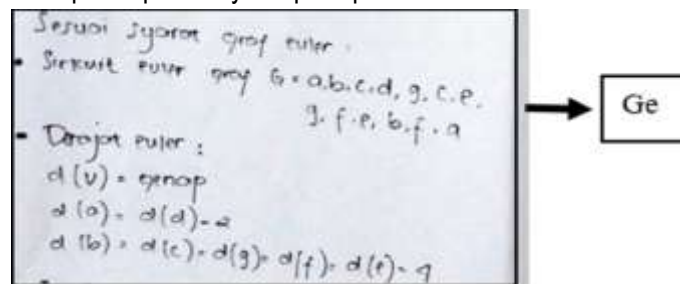 Sesuai syarat graf euler.
- Sirkuit euler graf G = a, b, c, d, g, c, e,
g, f, e, b, f, a
- Derajat euler :
d(v) = genap
d(a) = d(d) = 2
d(b) = d(c) = d(g) = d(f) = d(e) = 4
Ge